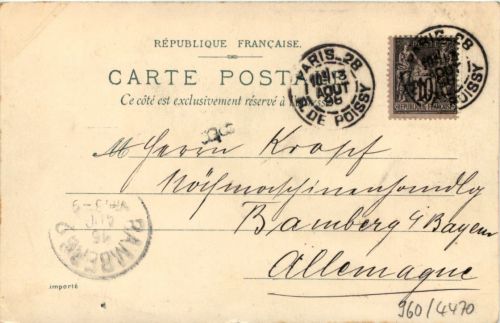 RÉPUBLIQUE FRANÇAISE.
CARTE POSTA
Ce côté est exclusivement réservé à l'adresse
PARIS_28
13
AOUT
98
R. DE POISSY
28
POISSY
10
RÉPUBLIQUE FRANÇAISE
Herrn Kropf
Nähmaschinenhandlg
Bamberg
Allemagne
BAMBERG
15
AUG
importé
960/4470